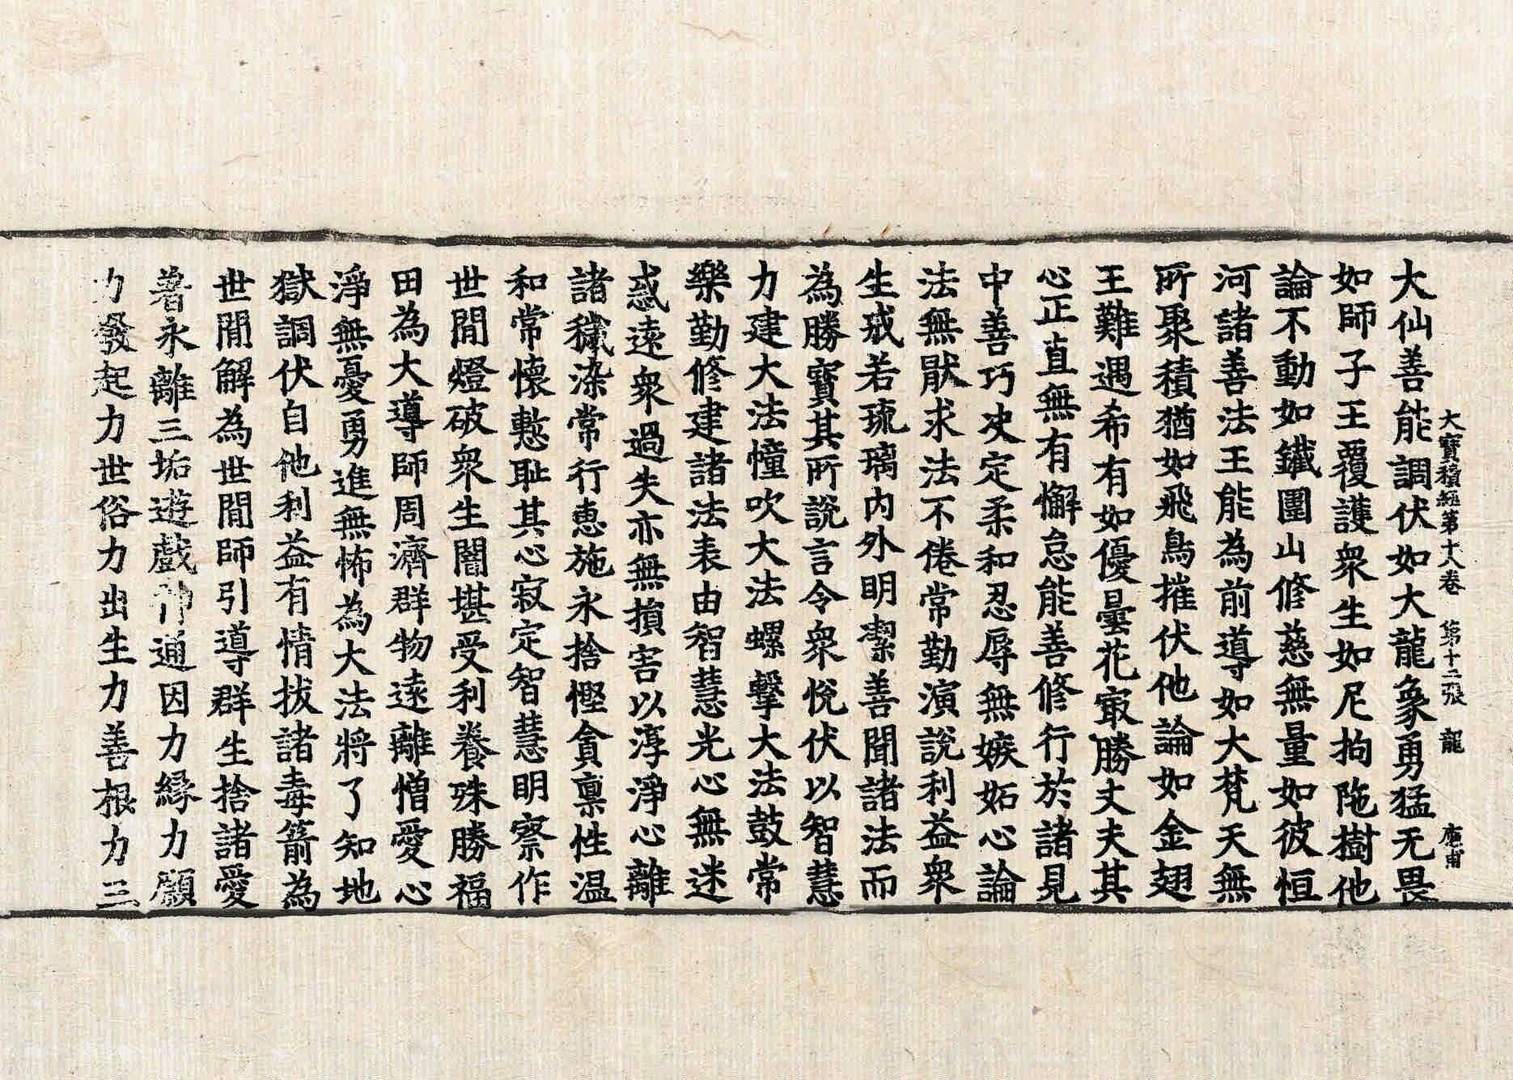 大寶積經第十八卷　第十二張　龍　應甫
大仙善能調伏如大龍象勇猛无畏
如師子王覆護衆生如尼拘陁樹他
論不動如鐵圍山修慈無量如彼恒
河諸善法王能為前導如大梵天無
所聚積猶如飛鳥摧伏他論如金翅
王難遇希有如優曇花㝡勝丈夫其
心正直無有懈怠能善修行於諸見
中善巧決定柔和忍辱無嫉妬心論
法無猒求法不倦常勤演說利益衆
生戒若琉璃內外明㓗善聞諸法而
為勝寶其所說言令衆悅伏以智慧
力建大法幢吹大法螺擊大法鼓常
樂勤修建諸法表由智慧光心無迷
惑遠衆過失亦無損害以淳淨心離
諸穢染常行惠施永捨慳貪禀性温
和常懷慙耻其心寂定智慧明察作
世間燈破衆生闇堪受利養殊勝福
田為大導師周濟群物遠離憎愛心
淨無憂勇進無怖為大法將了知地
獄調伏自他利益有情拔諸毒箭為
世間解為世間師引導群生捨諸愛
著永離三垢遊戲神通因力緣力願
力發起力世俗力出生力善根力三